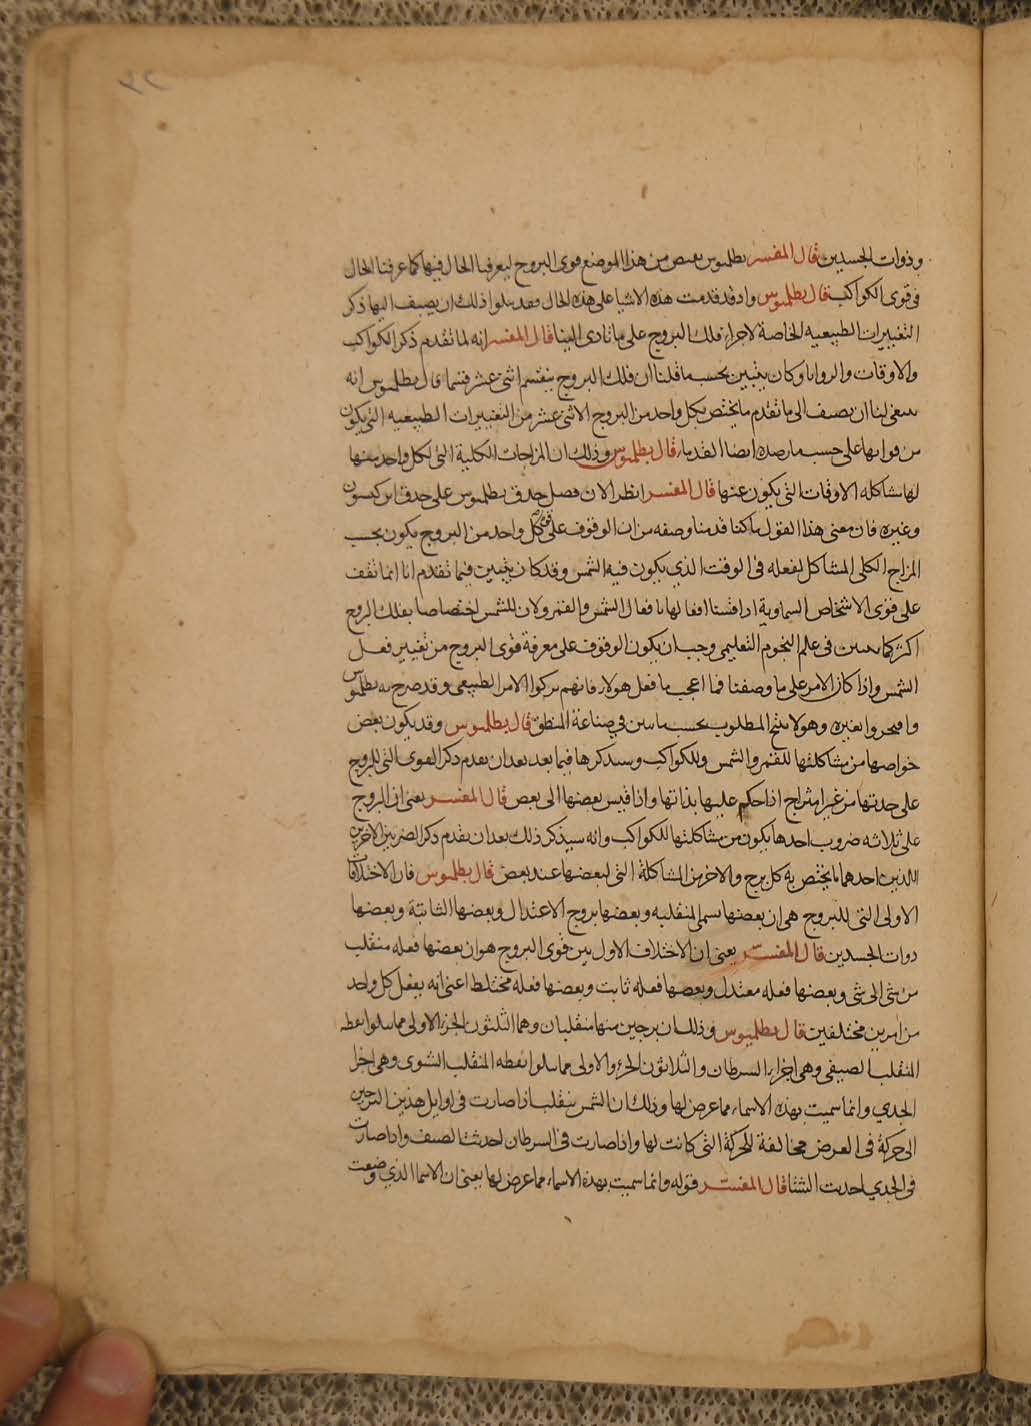 وذوات الجسدين قال المفسر بطلميوس يفحص من هذا الموضع قوى البروج ليعرفنا الحال فيها كما عرفنا الحال
في قوى الكواكب قال بطلميوس واذ قد قدمت هذه الاشيا على هذه الحال فقد يتلوا ذلك ان يضيف اليها ذكر
التغييرات الطبيعيه الخاصة لاجزاء فلك البروج على ما تادى الينا قال المفسر انه لما تقدم ذكر الكواكب
والاوقات والزوايا وكان يتبين بحسب ما قلنا ان فلك البروج ينقسم اثنى عشر قسما قال بطلميوس انه
ينبغي لنا ان نضيف الى ما تقدم ما يختص بكل واحد من البروج الاثنى عشر من التغييرات الطبيعيه التي يكون
من قواتها على حسب ما رصده ايضا القدماء قال بطلميوس وذلك ان المزاجات الكلية التي لكل واحد منها
لها مشاكله الاوقات التي يكون عنها قال المفسر انظر الان فصل حذق بطلميوس على حذق ابن كيسون
وغيره فان معنى هذا القول ما كنا قدمنا وصفه من ان الوقوف على قوى كل واحد من البروج يكون بحسب
المزاج الكلي المشاكل لفعله في الوقت الذي يكون فيه الشمس وقد كان يتبين فيما تقدم انا انما نقف
على قوى الاشخاص السماوية اذا قسنا افعالها بافعال الشمس والقمر ولان للشمس اختصاصا بفلك البروج
اكثر كما يتبين في علم النجوم التعليمي وجب ان يكون الوقوف على معرفة قوى البروج من تغيير فعل
الشمس واذا كان الامر على ما وصفنا فما اعجب ما فعل هولاء فانهم تركوا الامر الطبيعي وقد صرح به بطلميوس
وافتخروا بغيره وهولا ينتج المطلوب بحسب ما يتبين في صناعة المنطق قال بطلميوس وقد يكون بعض
خواصها من مشاكلتها للقمر والشمس وللكواكب وسنذكرها فيما بعد بعد ان نقدم ذكر القوى التي للبروج
على حدتها من غير امتزاج اذا حكم عليها بذاتها واذا قيس بعضها الى بعض قال المفسر يعني ان البروج
على ثلاثه ضروب احدها يكون من مشاكلتها للكواكب وانه سيذكر ذلك بعد ان يقدم ذكر الضربين الاخرين
اللذين احدهما ما يختص به كل برج والاخر من المشاكلة التي لبعضها عند بعض قال بطلميوس فان الاختلافات
الاولى التي للبروج هي ان بعضها يسمى المنقلبه وبعضها بروج الاعتدال وبعضها الثابتة وبعضها
ذوات الجسدين قال المفسر يعني ان الاختلاف الاول بين قوى البروج هو ان بعضها فعله منقلب
من شي الى شي وبعضها فعله معتدل وبعضها فعله ثابت وبعضها فعله مختلط اعني انه يفعل كل واحد
من امرين مختلفين قال بطلميوس وذلك ان برجين منها منقلبان وهما الثلثون الجزء الاولى مما يتلوا نقطه
المنقلب الصيفي وهي اجزاء السرطان والثلاثون الجزء الاولى مما يتلوا نقطه المنقلب الشتوى وهي اجزا
الجدي وانما سميت بهذه الاسماء مما عرض لها وذلك ان الشمس ينقلب اذا صارت في اوايل هذين البرجين
الى حركة في العرض مخالفة للحركة التي كانت لها واذا صارت في السرطان احدثت الصيف واذا صارت
في الجدي احدثت الشتا قال المفسر قوله وانما سميت بهذه الاسماء مما عرض لها يعني ان الاسما الذي وضعت